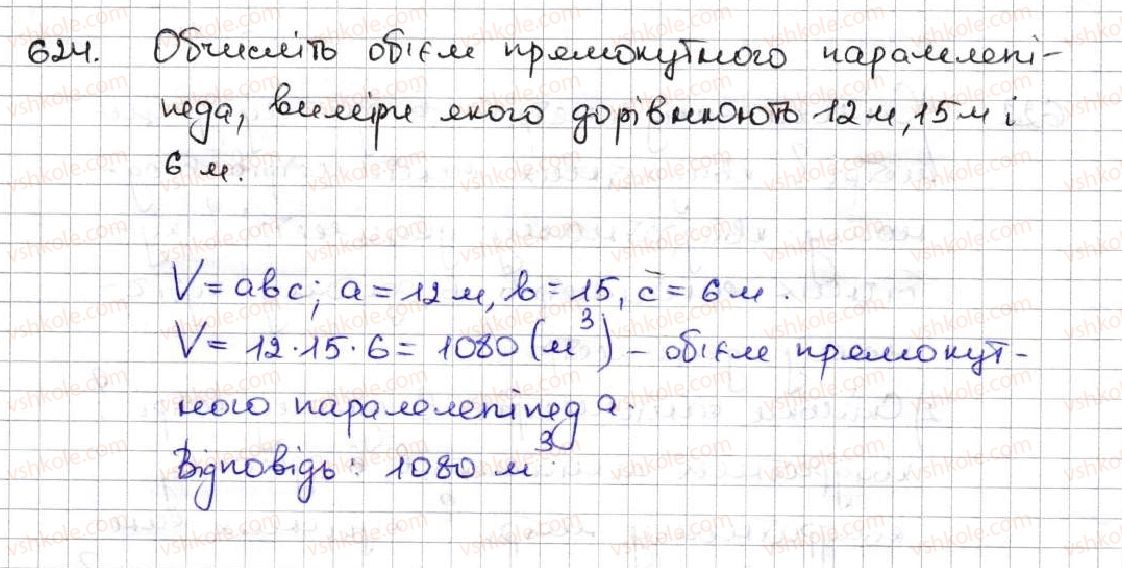 624. Обчисліть об'єм прямокутного паралелепі-
педа, виміри якого дорівнюють 12 м, 15 м і
6 м.
V = abc; a = 12 м, b = 15, c = 6 м.
V = 12·15·6 = 1080 (м³) – об'єм прямокут-
ного паралелепіпеда.
Відповідь: 1080 м³.